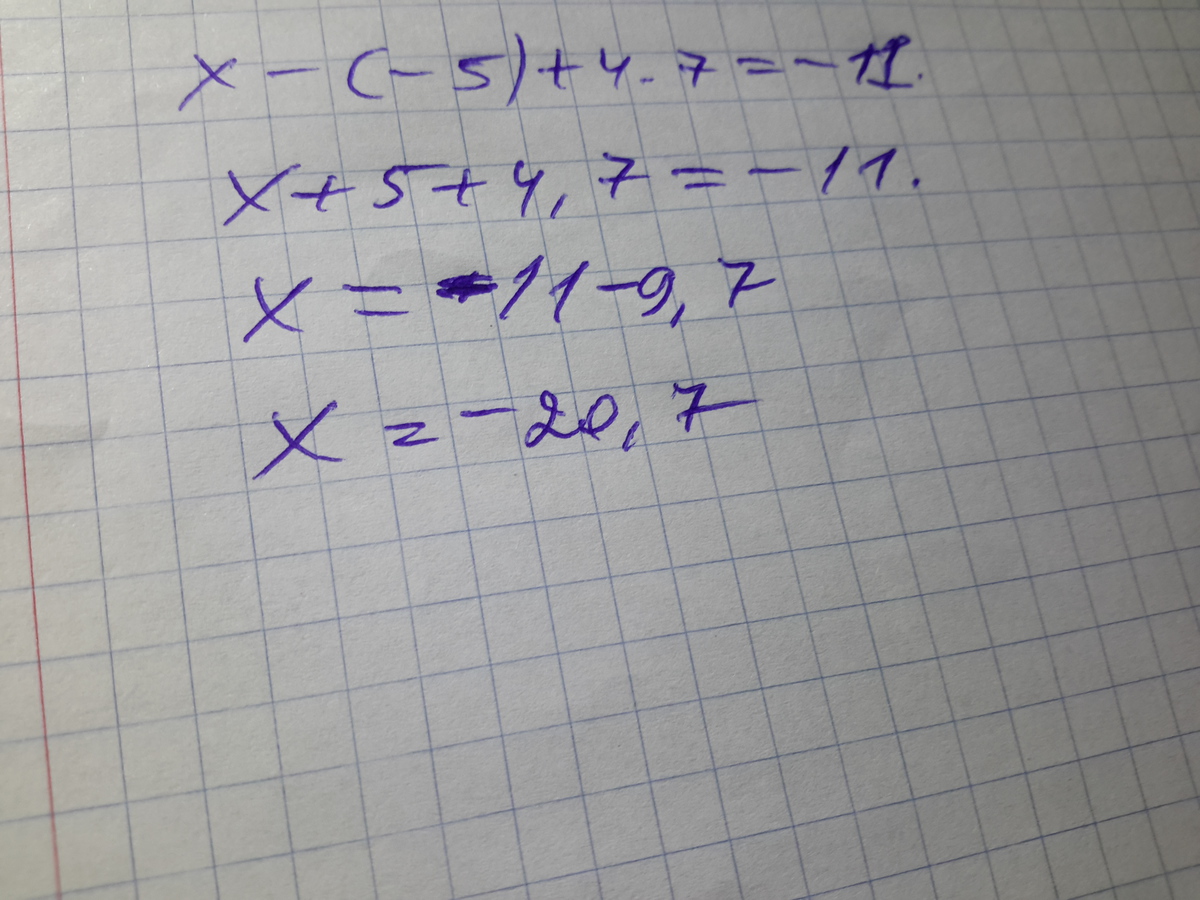 x - (-5) + 4.7 = -11.
x + 5 + 4,7 = -11.
x = -11 - 9,7
x = -20,7